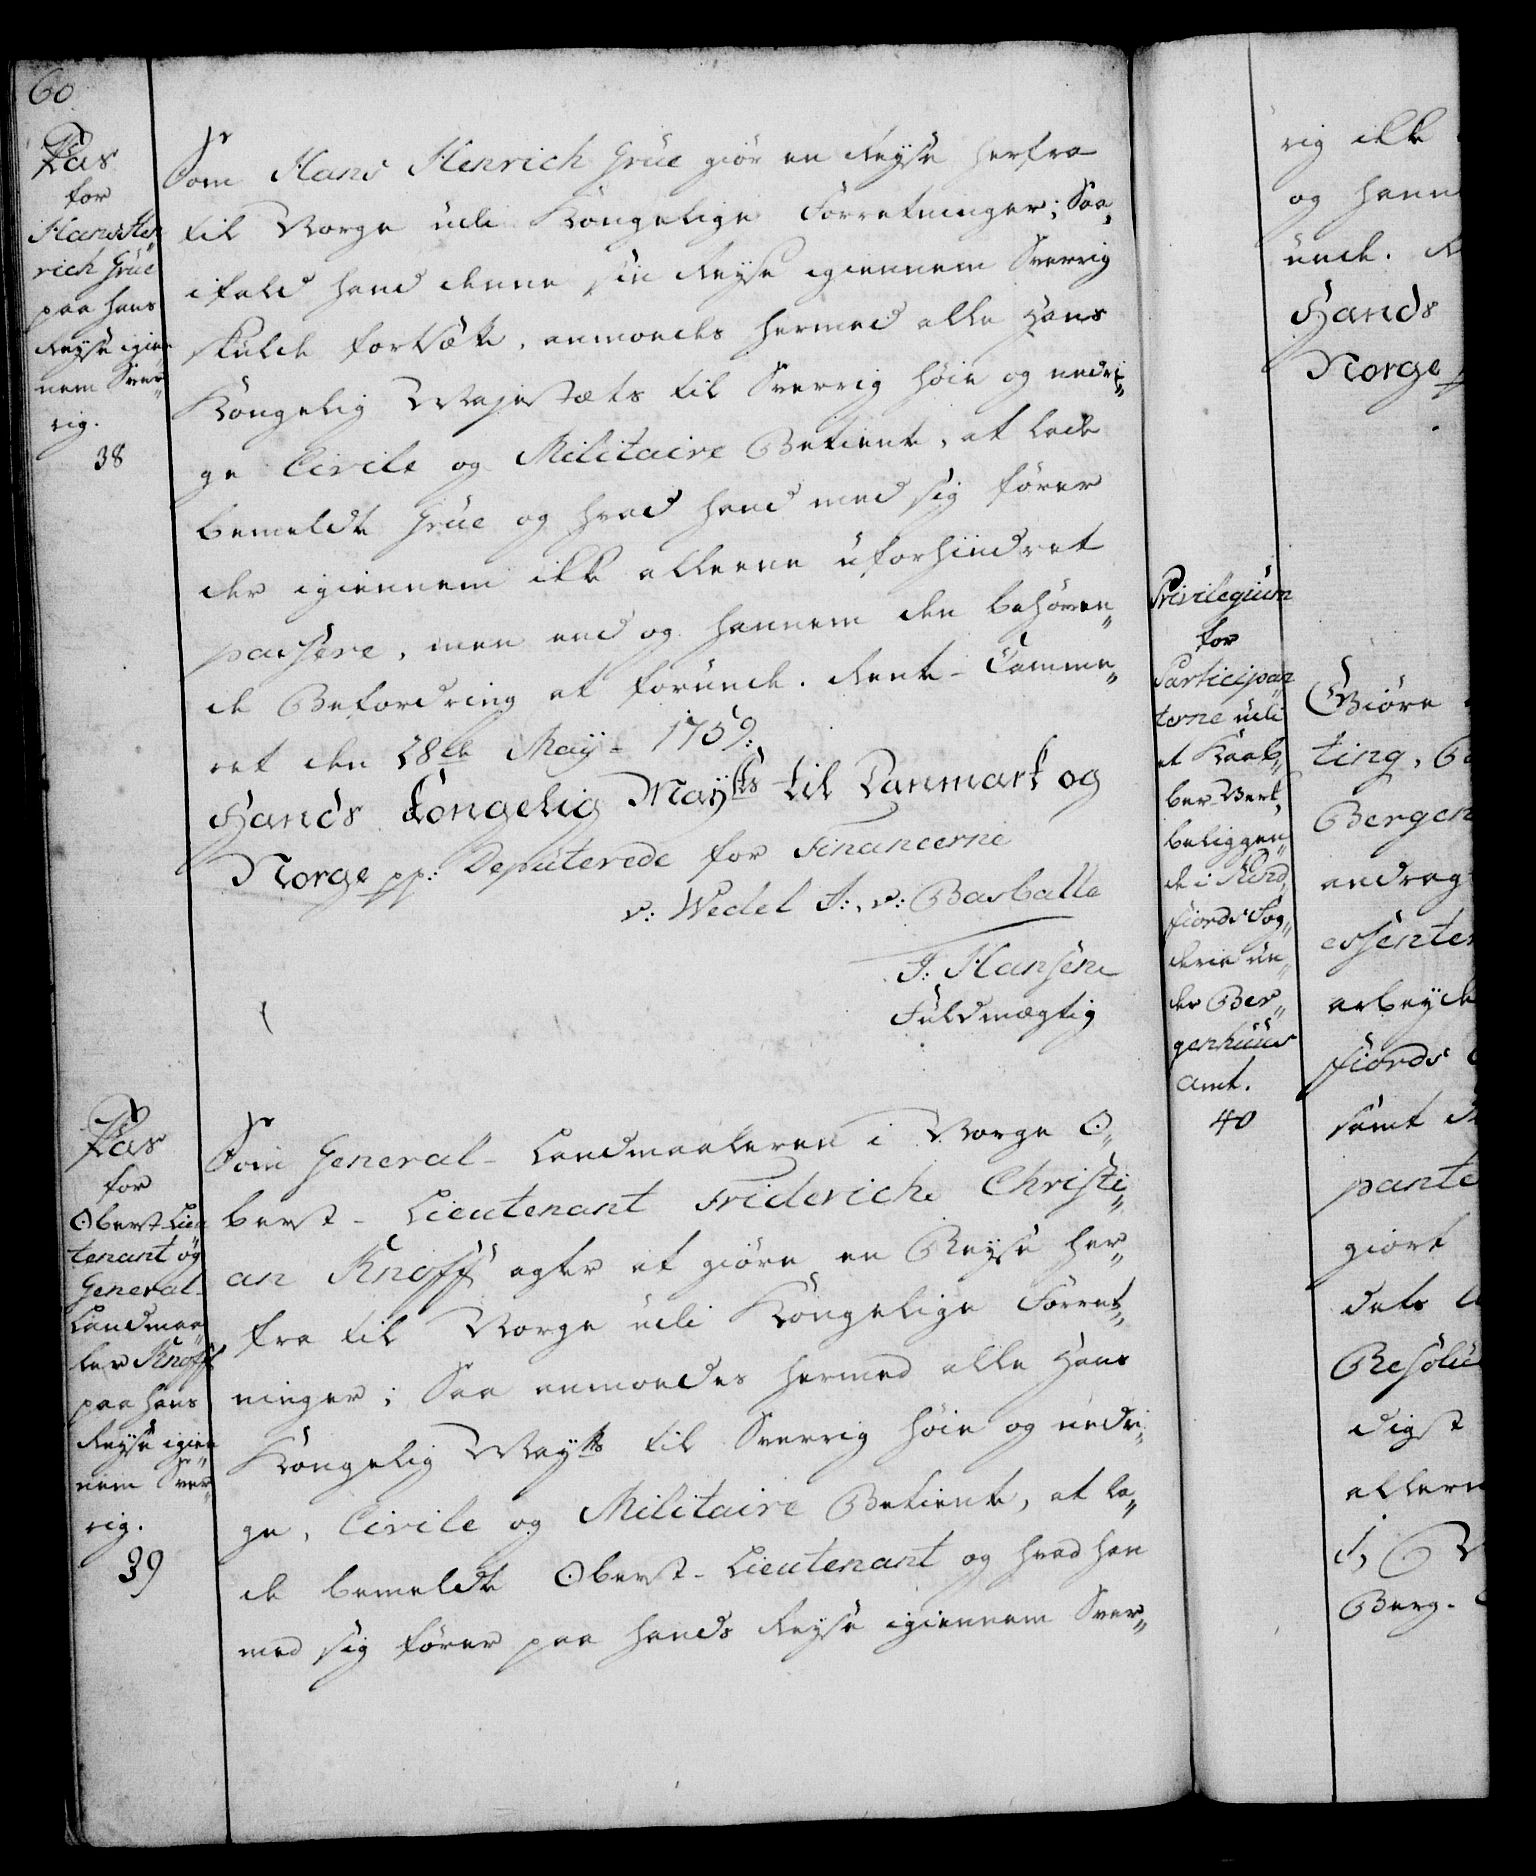 60
Pas
for
Hans Hen„
rich Grüe
paa hans
Reyse igien„
nem Sver„
rig.
38
Som Hans Henrich Grüe giör en Reyse herfra
til Norge udi Kongelige Forretninger; Saa,
ifald hand denne sin Reyse igiennem Sverrig
skulde fortsætte, anmodes hermed alle Hans
Kongelig Majestæts til Sverrig høie og nedri„
ge Civile og Militaire Betiente, at lade
bemeldte Grüe og hvad hand med sig förer
der igiennem ikke alleene uforhindret
passere, men end og hannem den behøven„
de Befordring at forunde. Rente-Camme„
ret den 28de Maÿ 1759.
Hands Kongelig Maÿts til Danmark og
Norge pp: Deputerede for Financerne
v: Wedel F:, v: Barballe
F: Hansen
Fuldmægtig
Pas
for
Oberst-Lieu
tenant og
General-
Landmaa„
ler Knoff
paa hans
Reyse igien„
nem Sver„
rig.
39
Som General-Landmaaleren i Norge O„
berst-Lieutenant Friderich Christi„
an Knoff agter at giöre en Reyse her„
fra til Norge udi Kongelige Forret„
ninger; Saa anmodes hermed alle Hans
Kongelig Mayts til Sverrig høie og nedri„
ge, Civile og Militaire Betiente, at la„
de bemeldte Oberst-Lieutenant og hvad han
med sig förer paa hands Reyse igiennem Sver„
Privilegium
for
Participan„
terne udi
et Kaab„
ber-Verk,
beliggen„
de i Sünd„
fiords Fog„
derie un„
der Ber„
genhuus
Amt.
40
rig ikke
og hann
unde. R
Hands
Norge
Giöre
ting, C
Bergen
andrag
essenter
arbeyde
fiords
samt
pante
giort
dets
Resolu
digst
allern
Berg.